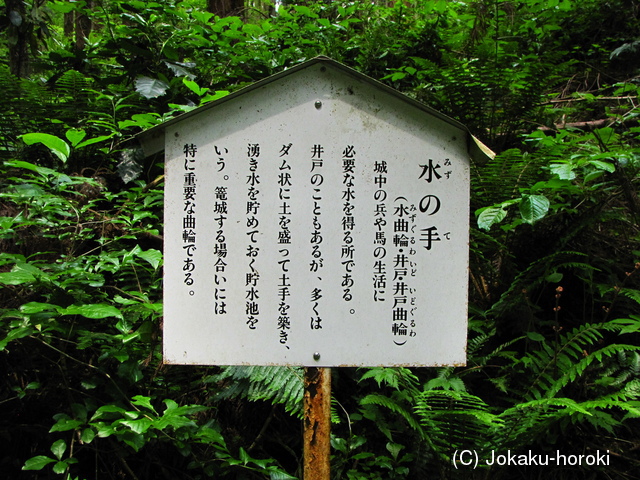 水の手
みず て
（水曲輪・井戸・井戸曲輪）
みずぐるわ いど いどぐるわ
城中の兵や馬の生活に
必要な水を得る所である。
井戸のこともあるが、多くは
ダム状に土を盛って土手を築き、
湧き水を貯めておく貯水池を
いう。篭城する場合いには
特に重要な曲輪である。
(C)Jokaku-horoki